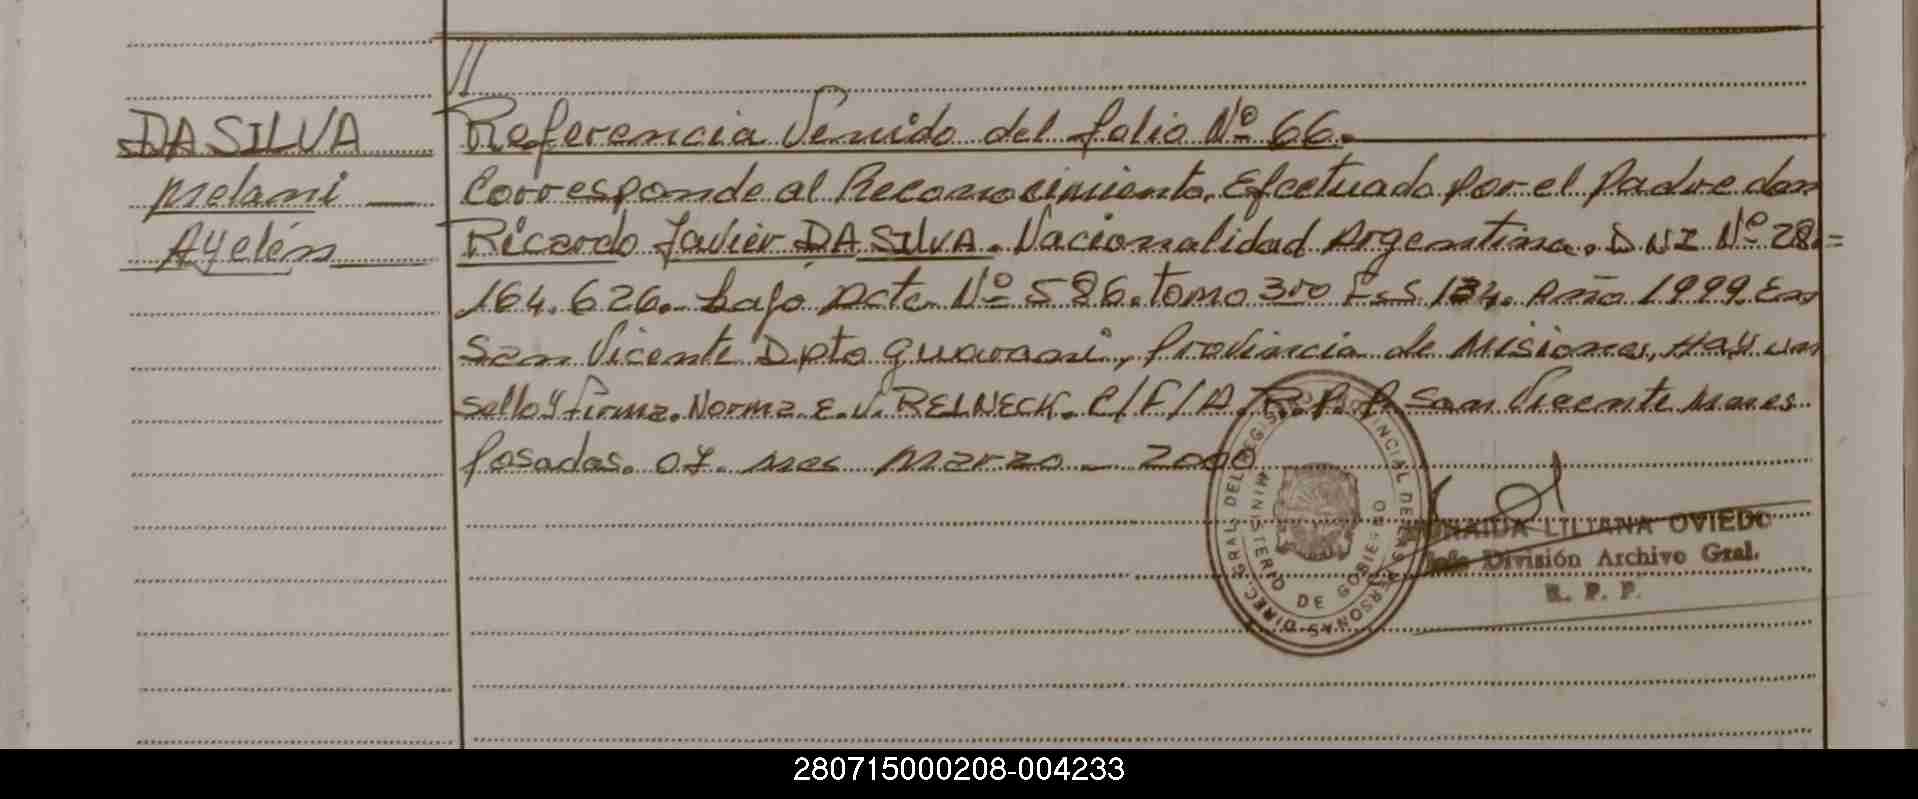 //
DA SILVA Referencia Venido del folio Nº 66.
Melani Corresponde al Reconocimiento. Efectuado por el padre don
Ayelén Ricardo Javier DA SILVA. Nacionalidad Argentina. DNI Nº 28=
164.626. bajo Acta Nº 586. tomo 3ro Año 1999. En
San Vicente Dpto guarani, Provincia de Misiones, Hay un
sello y firma. Norma. E. V. REINECK. C/F/A. R.P.P. San Vicente Mnes
Posadas. 07. mes Marzo - 2000
DIREC. GRAL. DEL REGISTRO PROVINCIAL DE LAS PERSONAS
MINISTERIO DE GOBIERNO
LILIANA OVIEDO
Jefe División Archivo Gral.
R. P. P.
280715000208-004233